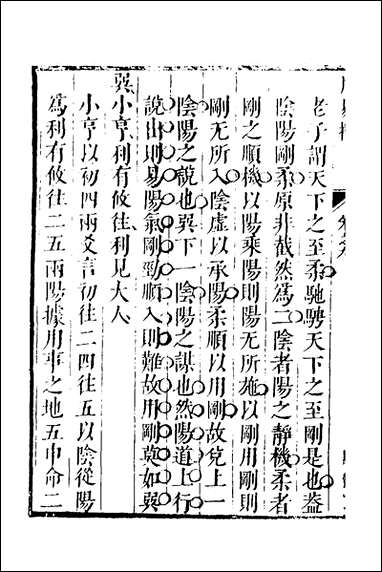 老子謂天下之至柔馳騁天下之至剛是也蓋
陰陽剛柔原非截然爲二陰者陽之靜機柔者
剛之順機以陽乘陽則陽无所施以剛用剛則
剛无所入陰虛以承陽柔順以用剛故兌上一
陰陽之說也巽下一陰陽之謀也然陽道上行
說出則易陽氣剛勁順入則難故用剛莫如巽
巽小亨利有攸往利見大人
小亨以初四兩爻言初往二四往五以陰從陽
爲利有攸往二五兩陽據用事之地五申命二